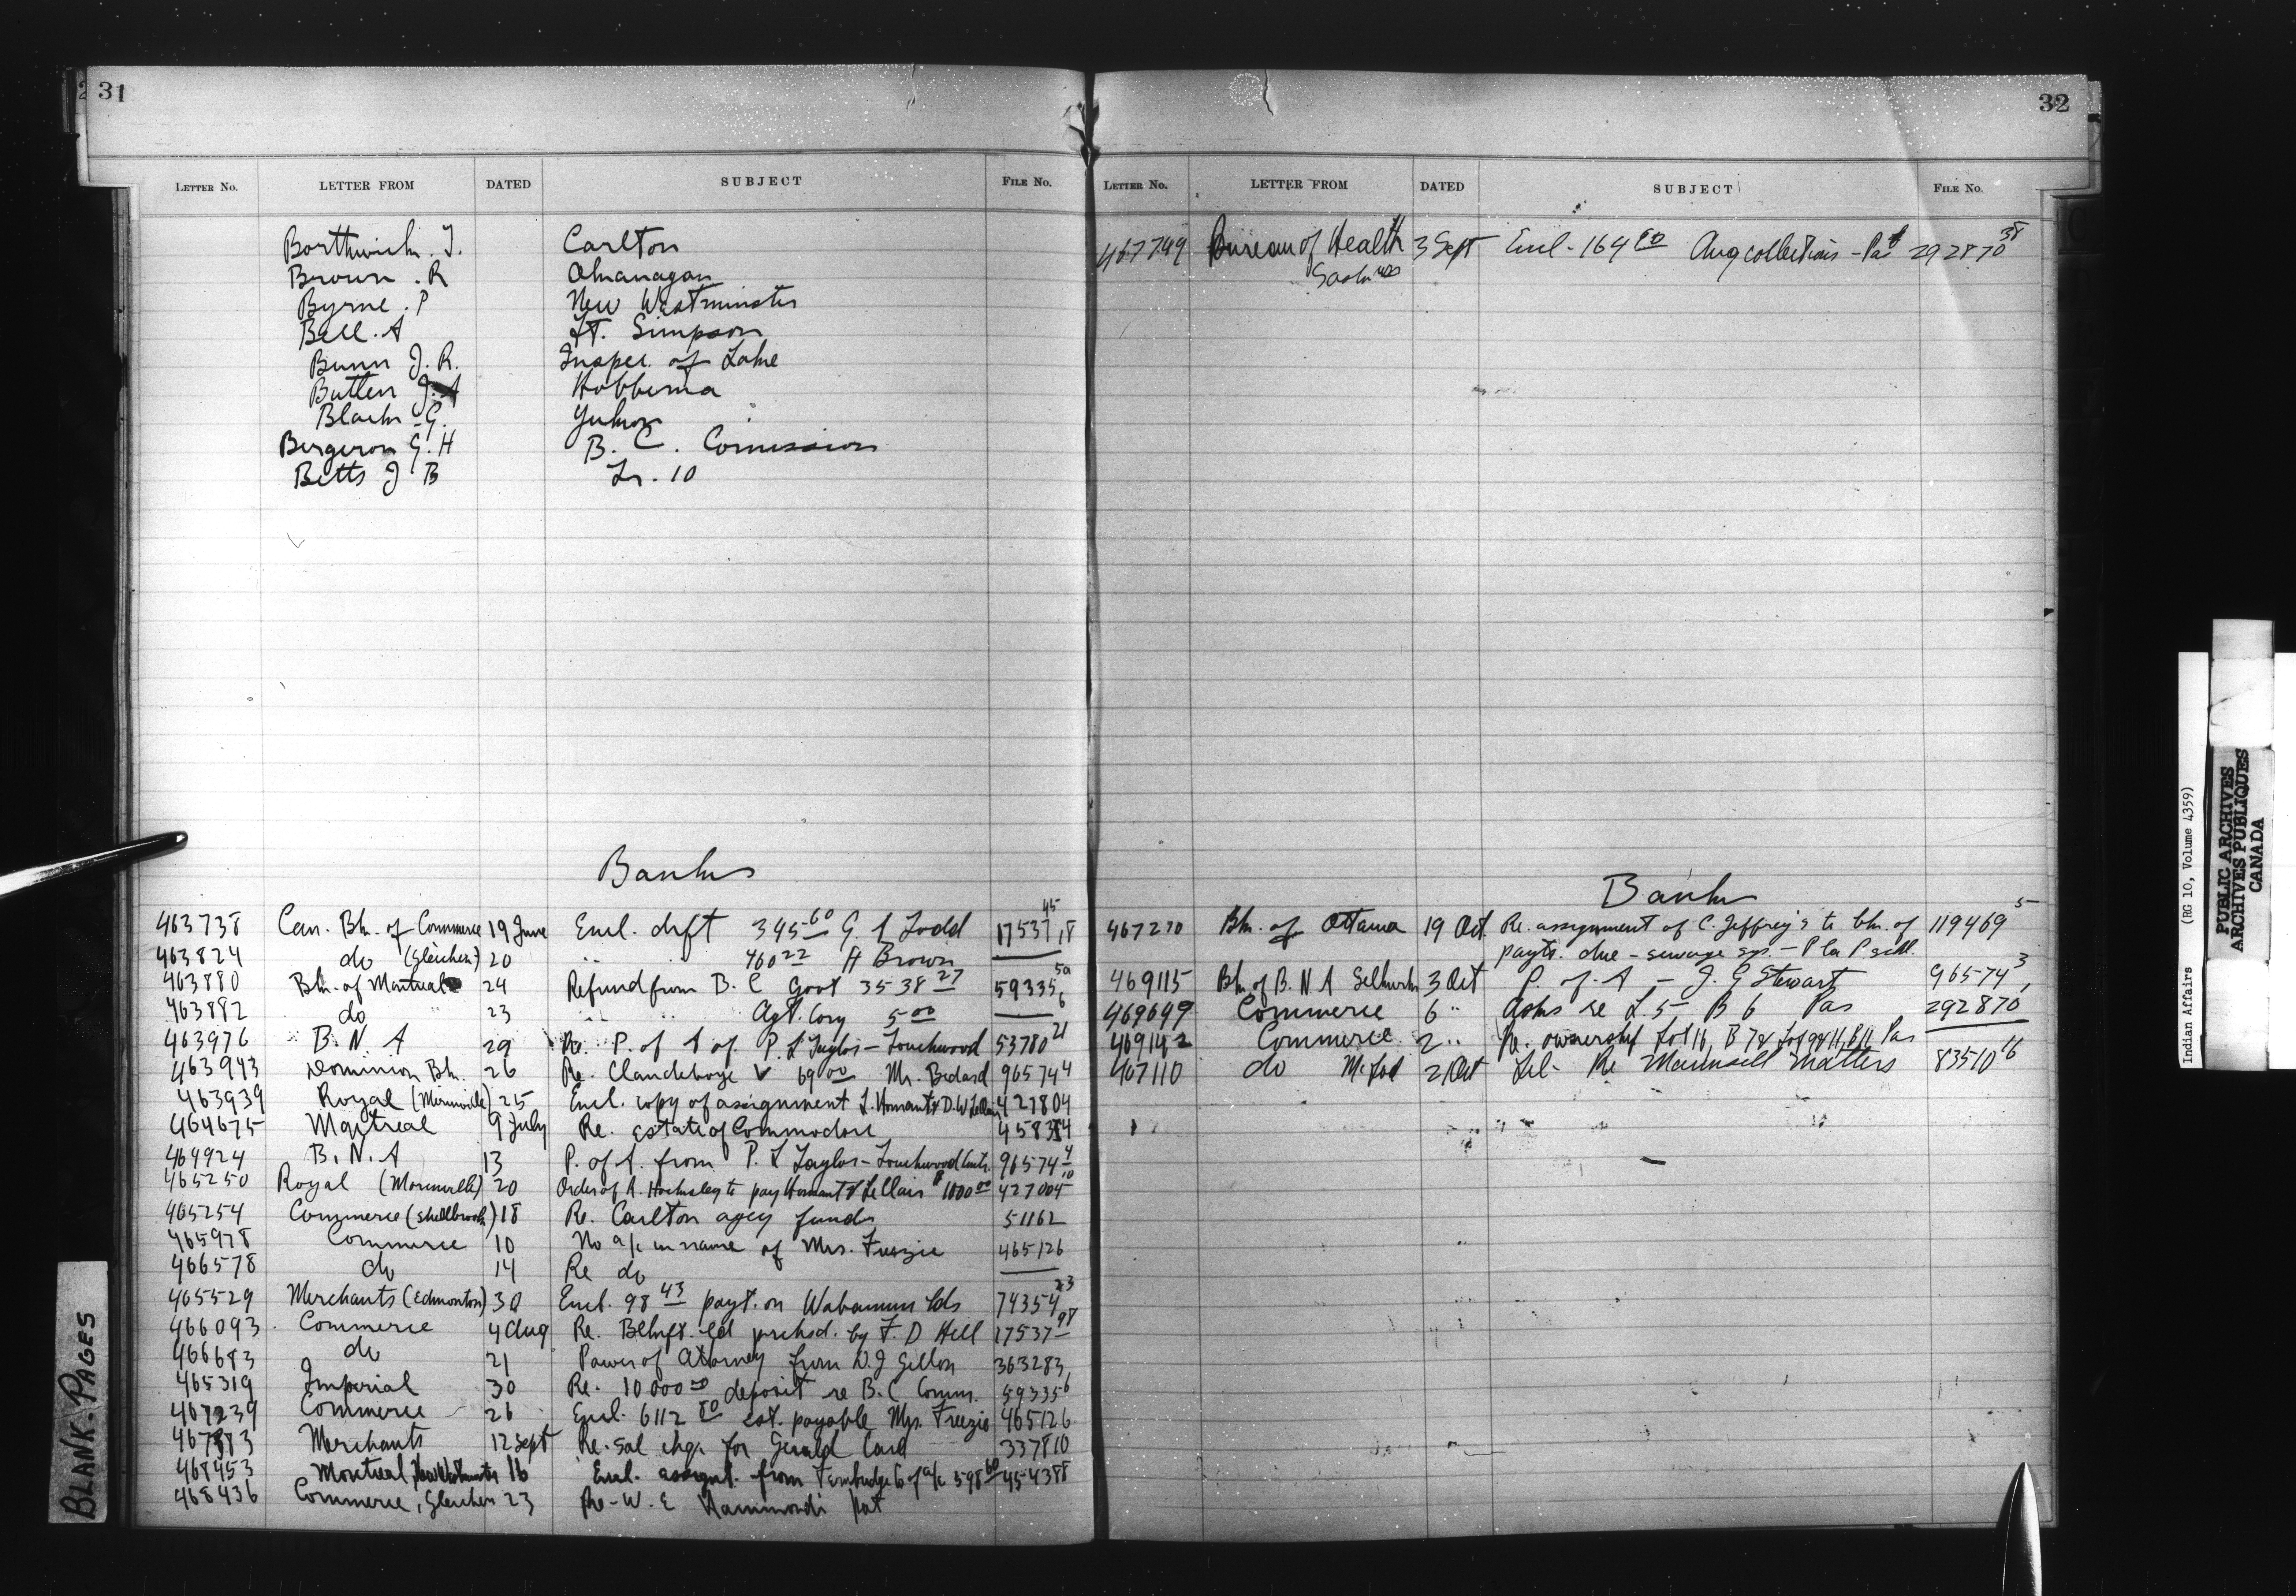 31
LETTER NO. LETTER FROM DATED SUBJECT FILE NO.
Borthwick. J. Carlton
Brown. R Okanagan
Byrne. P New Westminster
Bell. A Ft. Simpson
Bunn J. R. Inspec. of Lake
Butlen J. Hobbema
Black G. Yukon
Bergeron G. H B. C. Comission
Betts J B Tr. 10
Banks
463738 Can. Bk. of Commerce 19 June Encl. drft 345 60 G. Todd 17537 45
463824 do (Gleichen) 20 " 460 22 H Brown
463880 Bk. of Montreal 24 Refund from B. C Govt 3538 27 59335 5a
463882 do 23 " " Agt. Cory 5 00
463976 B. N. A 29 Re. P. of A of P. L Taylor - Touchwood 53780 21
463943 Dominion Bk. 26 Re. Clandeboye 69 00 Mr. Bedard 96574 4
463939 Royal 25 Encl. copy of assignment
464675 Montreal 9 July Re. estate of Commodore
464924 B. N. A 13 P. of A. from P. L Taylor - Touchwood 96574 4
465250 Royal 20 Order of A. to pay 1000 00 427004
465254 Commerce (Shellbrook) 18 Re. Carlton agcy funds 51162
465978 Commerce 10 No a/c in name of Mrs. Freezie 465126
466578 do 14 Re do
465529 Merchants (Edmonton) 30 Encl. 98 43 payt. on Wabamun lds 74354 23
466093 Commerce 4 Aug Re. Blkft. ld prchsd. by F. D Hell 17537 98
466683 do 21 Power of Attorney from D. J Gillon 363283
465319 Imperial 30 Re. 10000 00 deposit re B. C Comm. 59335 6
467239 Commerce 26 Encl. 6112 80 est. payable Mrs. Freezie 465126
Merchants 12 Sept Re. Sal chq. for Gerald Card 337810
468453 Montreal, New Westminster 16 Encl. assignt. from of a/c 598 60 454388
468436 Commerce, Gleichen 23 Re - W. E Hammond pat
32
LETTER NO. LETTER FROM DATED SUBJECT FILE NO.
467749 Bureau of Health 3 Sept Encl - 164 80 Aug collections - Pas 292870 38
Banks
467270 Bk. of Ottawa 19 Oct Re. assignment of C. Jeffrey's to bk. of 119469 5
payts. due - sewage sys. - P la P schl.
469115 Bk of B. N A Selkirk 3 Oct P. of A - J. G Stewart 96574 3
469699 Commerce 6 " Asks re L. 5, B 6 Pas 292870
469142 Commerce 2 " Re. ownership Lot 16, B 7 & Lot 9&11, B 11 Pas
467110 do McLod 2 Oct Tel - Re Maunsell Matters 83510 16
BLANK-PAGES
Indian Affairs (RG 10, Volume 4359)
PUBLIC ARCHIVES
ARCHIVES PUBLIQUES
CANADA